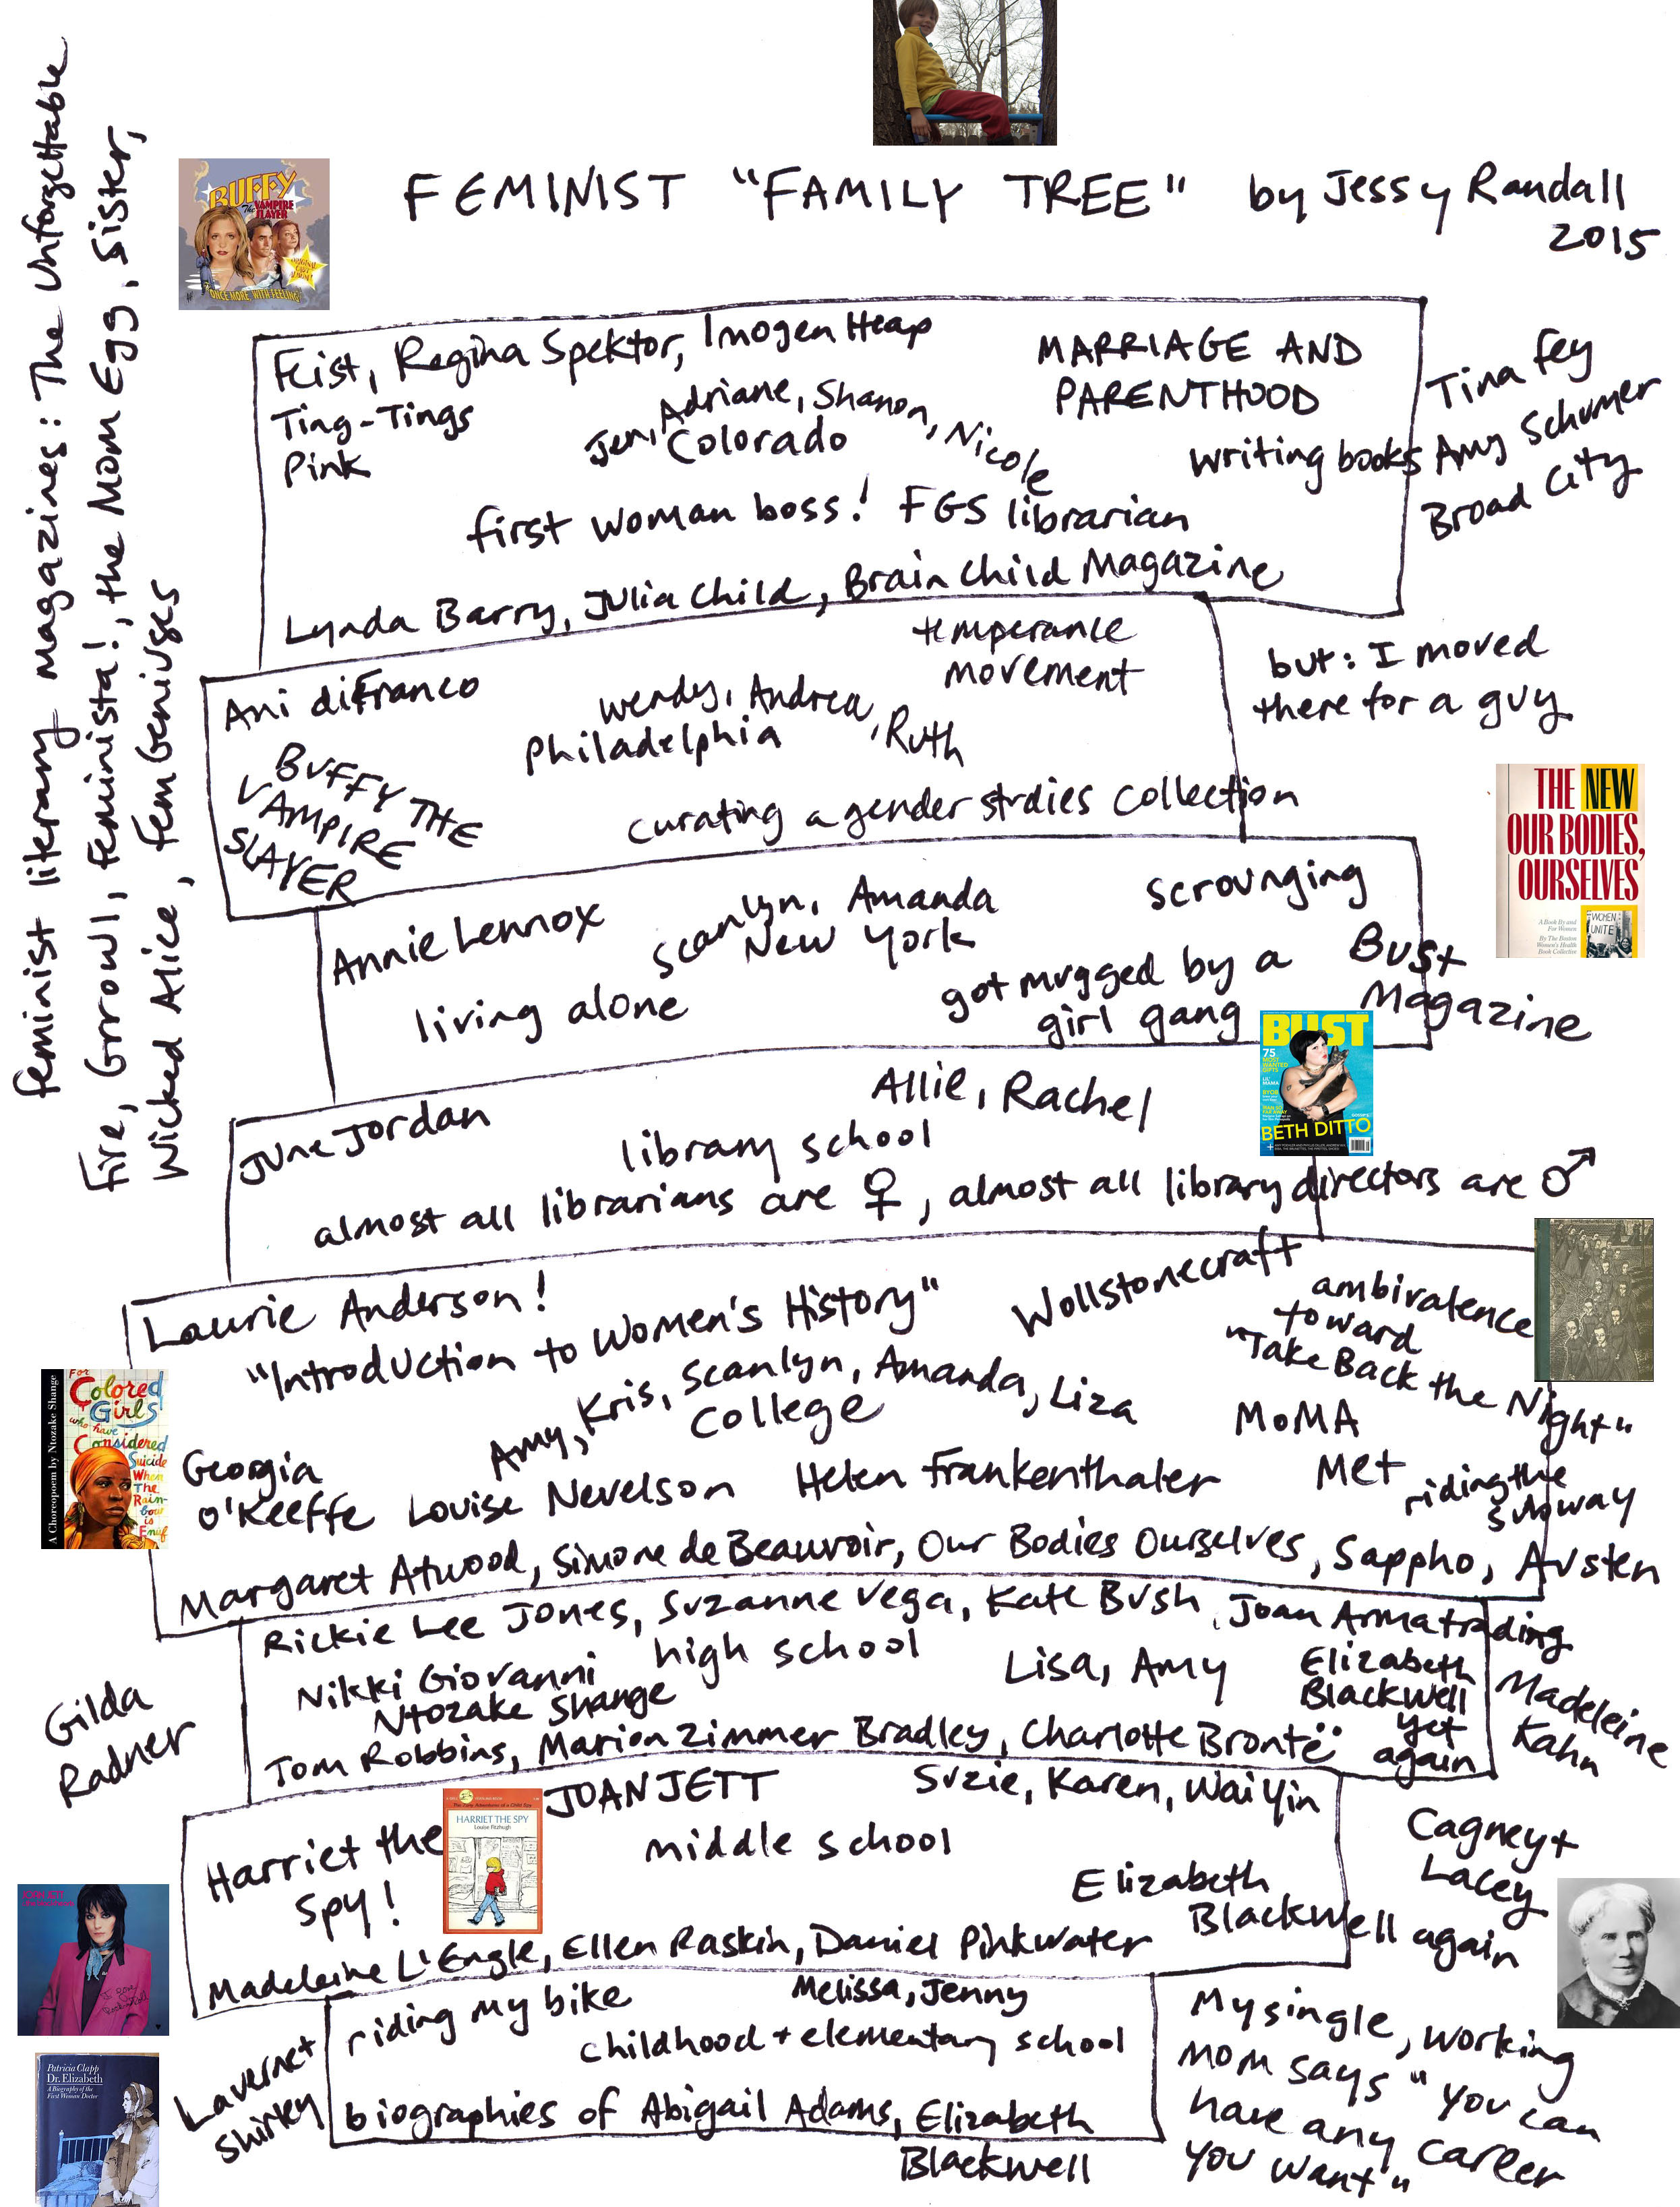 FEMINIST "FAMILY TREE" by Jessy Randall
2015
feminist literary magazines: The Unforgettable
Fire, Grrowl, feminista!, the Mom Egg, Sister,
Wicked Alice, FemGeniuses
BUFFY
The VAMPIRE
SLAYER
"ONCE MORE, WITH FEELING"
Feist, Regina Spektor, Imogen Heap
Ting-Tings
Pink
MARRIAGE AND
PARENTHOOD
Jen, Adriane, Shanon, Nicole
Colorado
writing books
Tina Fey
Amy Schumer
Broad City
first woman boss! FGS librarian
Lynda Barry, Julia Child, Brain Child Magazine
Ani diFranco
BUFFY THE
VAMPIRE
SLAYER
Wendy, Andrea, Ruth
Philadelphia
temperance
movement
but: I moved
there for a guy
curating a gender studies collection
THE NEW
OUR BODIES,
OURSELVES
A Book By and
For Women
By The Boston
Women's Health
Book Collective
WOMEN
UNITE
Annie Lennox
Scanlyn, Amanda
New York
scrounging
living alone
got mugged by a
girl gang
Bust
Magazine
BUST
75
MOST
WANTED
GIFTS
BETH DITTO
June Jordan
Allie, Rachel
library school
almost all librarians are ♀, almost all library directors are ♂
Laurie Anderson!
"Introduction to Women's History"
Wollstonecraft
ambivalence
toward
"Take Back the Night"
Amy, Kris, Scanlyn, Amanda, Liza
College
MoMA
Met
riding the
subway
Georgia
O'Keeffe Louise Nevelson Helen Frankenthaler
Margaret Atwood, Simone de Beauvoir, Our Bodies Ourselves, Sappho, Austen
A Choreopoem by Ntozake Shange
For
Colored
Girls
who have
Considered
Suicide
When
The
Rain-
bow
is
Enuf
Rickie Lee Jones, Suzanne Vega, Kate Bush, Joan Armatrading
Nikki Giovanni
Ntozake Shange
high school
Lisa, Amy
Elizabeth
Blackwell
yet
again
Tom Robbins, Marion Zimmer Bradley, Charlotte Brontë
Gilda
Radner
Madeleine
Kahn
JOAN JETT
Suzie, Karen, Wai Yin
Harriet the
Spy!
HARRIET THE SPY
Louise Fitzhugh
middle school
Elizabeth
Blackwell again
Cagney +
Lacey
Madeleine L'Engle, Ellen Raskin, Daniel Pinkwater
riding my bike
Melissa, Jenny
childhood + elementary school
biographies of Abigail Adams, Elizabeth
Blackwell
Laverne +
Shirley
My single, working
mom says "you can
have any career
you want"
Patricia Clapp
Dr. Elizabeth
A Biography of the
First Woman Doctor